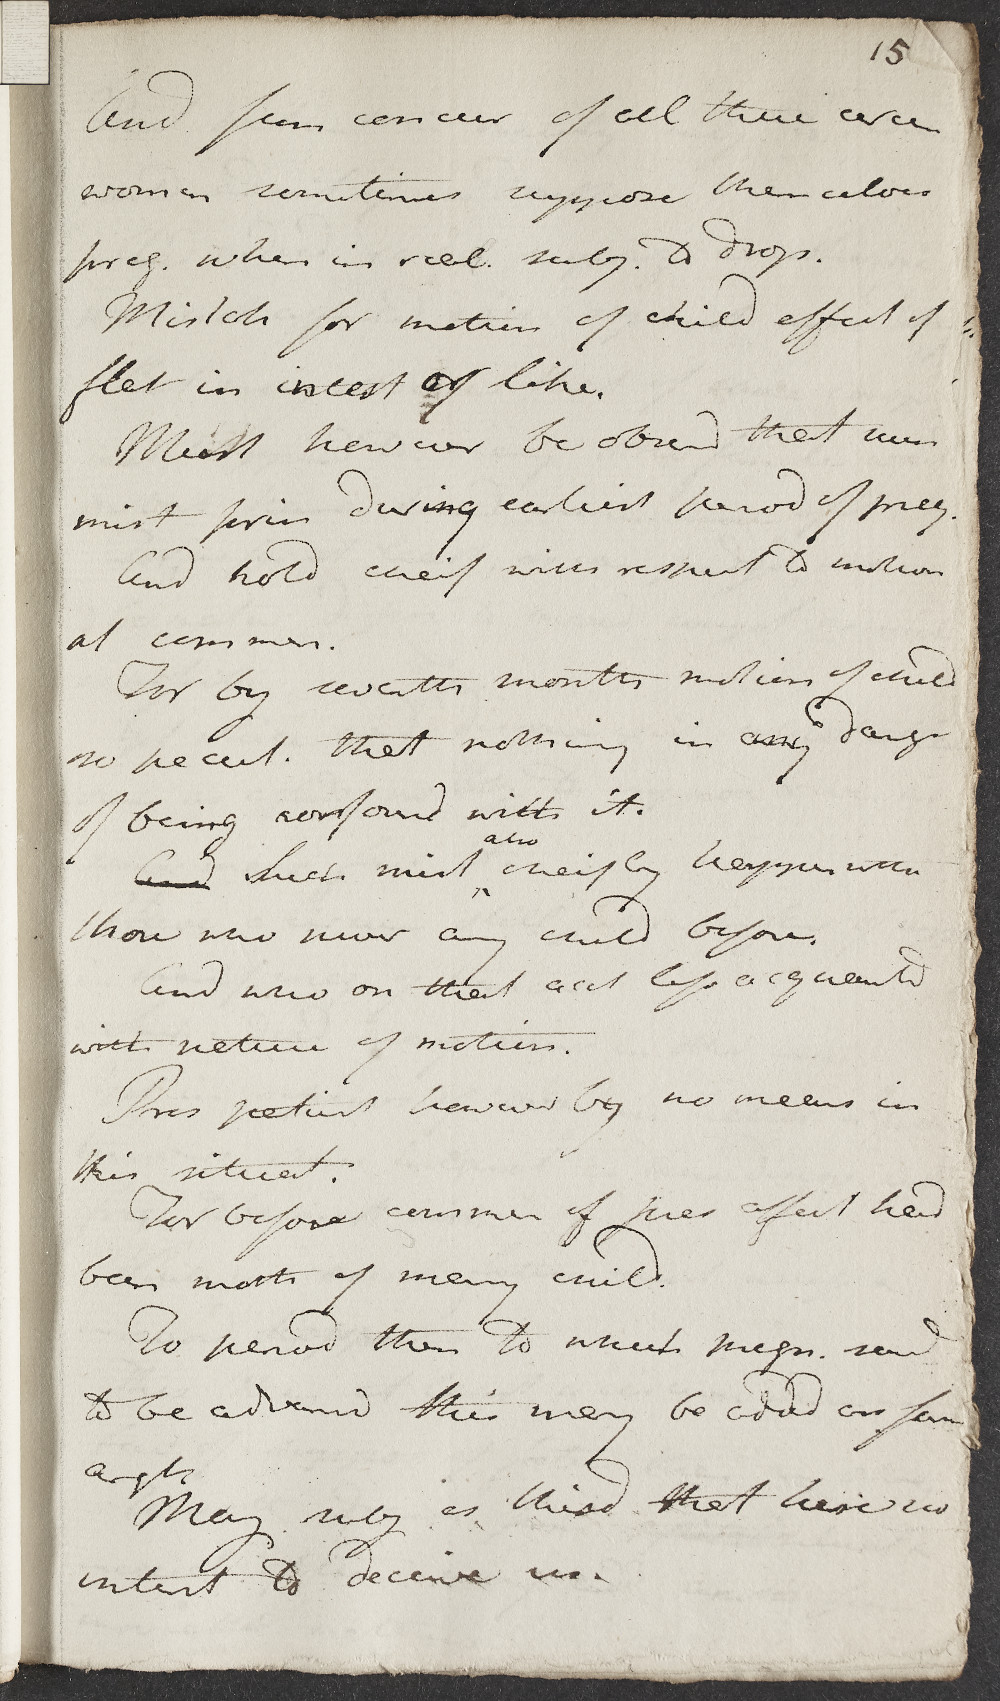 15
And from concur of all these circum
women sometimes suppose themselves
preg. when in real. subj. to drops.
Mistak for motion of child effect of
flat in intest or like.
Must however be observd that such
mist prin during earliest period of preg.
And hold cheif with respect to motion
at commen.
For by seventh month motion of child
so pecul. that nothing in any dang
of being confound with it.
And Such mist also cheifly happen with
those who never any child before.
And who on that acct less acquaintd
with nature of motion.
Pres patient however by no means in
this situat.
For before commen of pres affect had
been moth of many child.
To period then to which pregn. said
to be advancd this may be added as some
argt.
May subj. as third that have no
intent to deceive us.